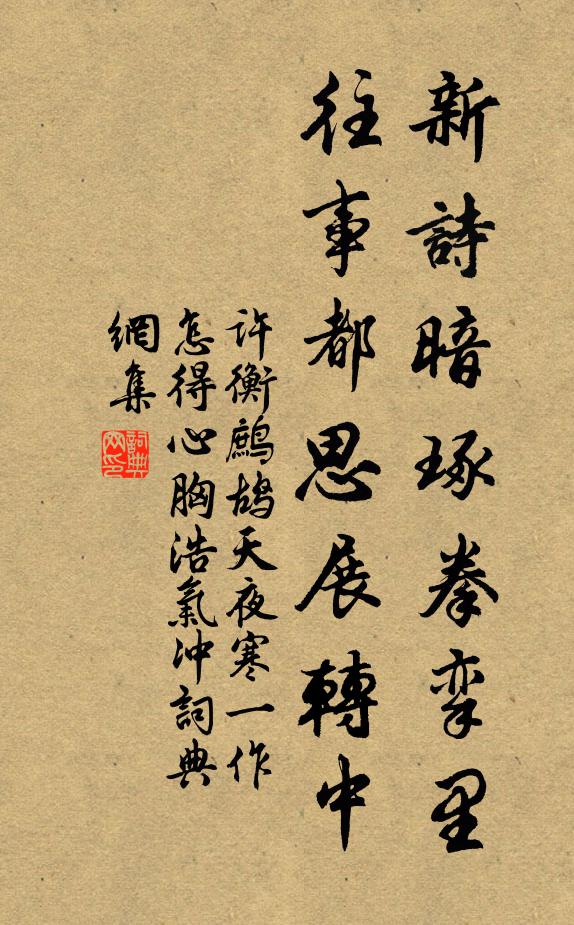 新詩暗琢拳挛里
往事都思展轉中
許衡鷓鴣天夜寒一作
怎得心胸浩氣冲詞典
網集
詞典
网印